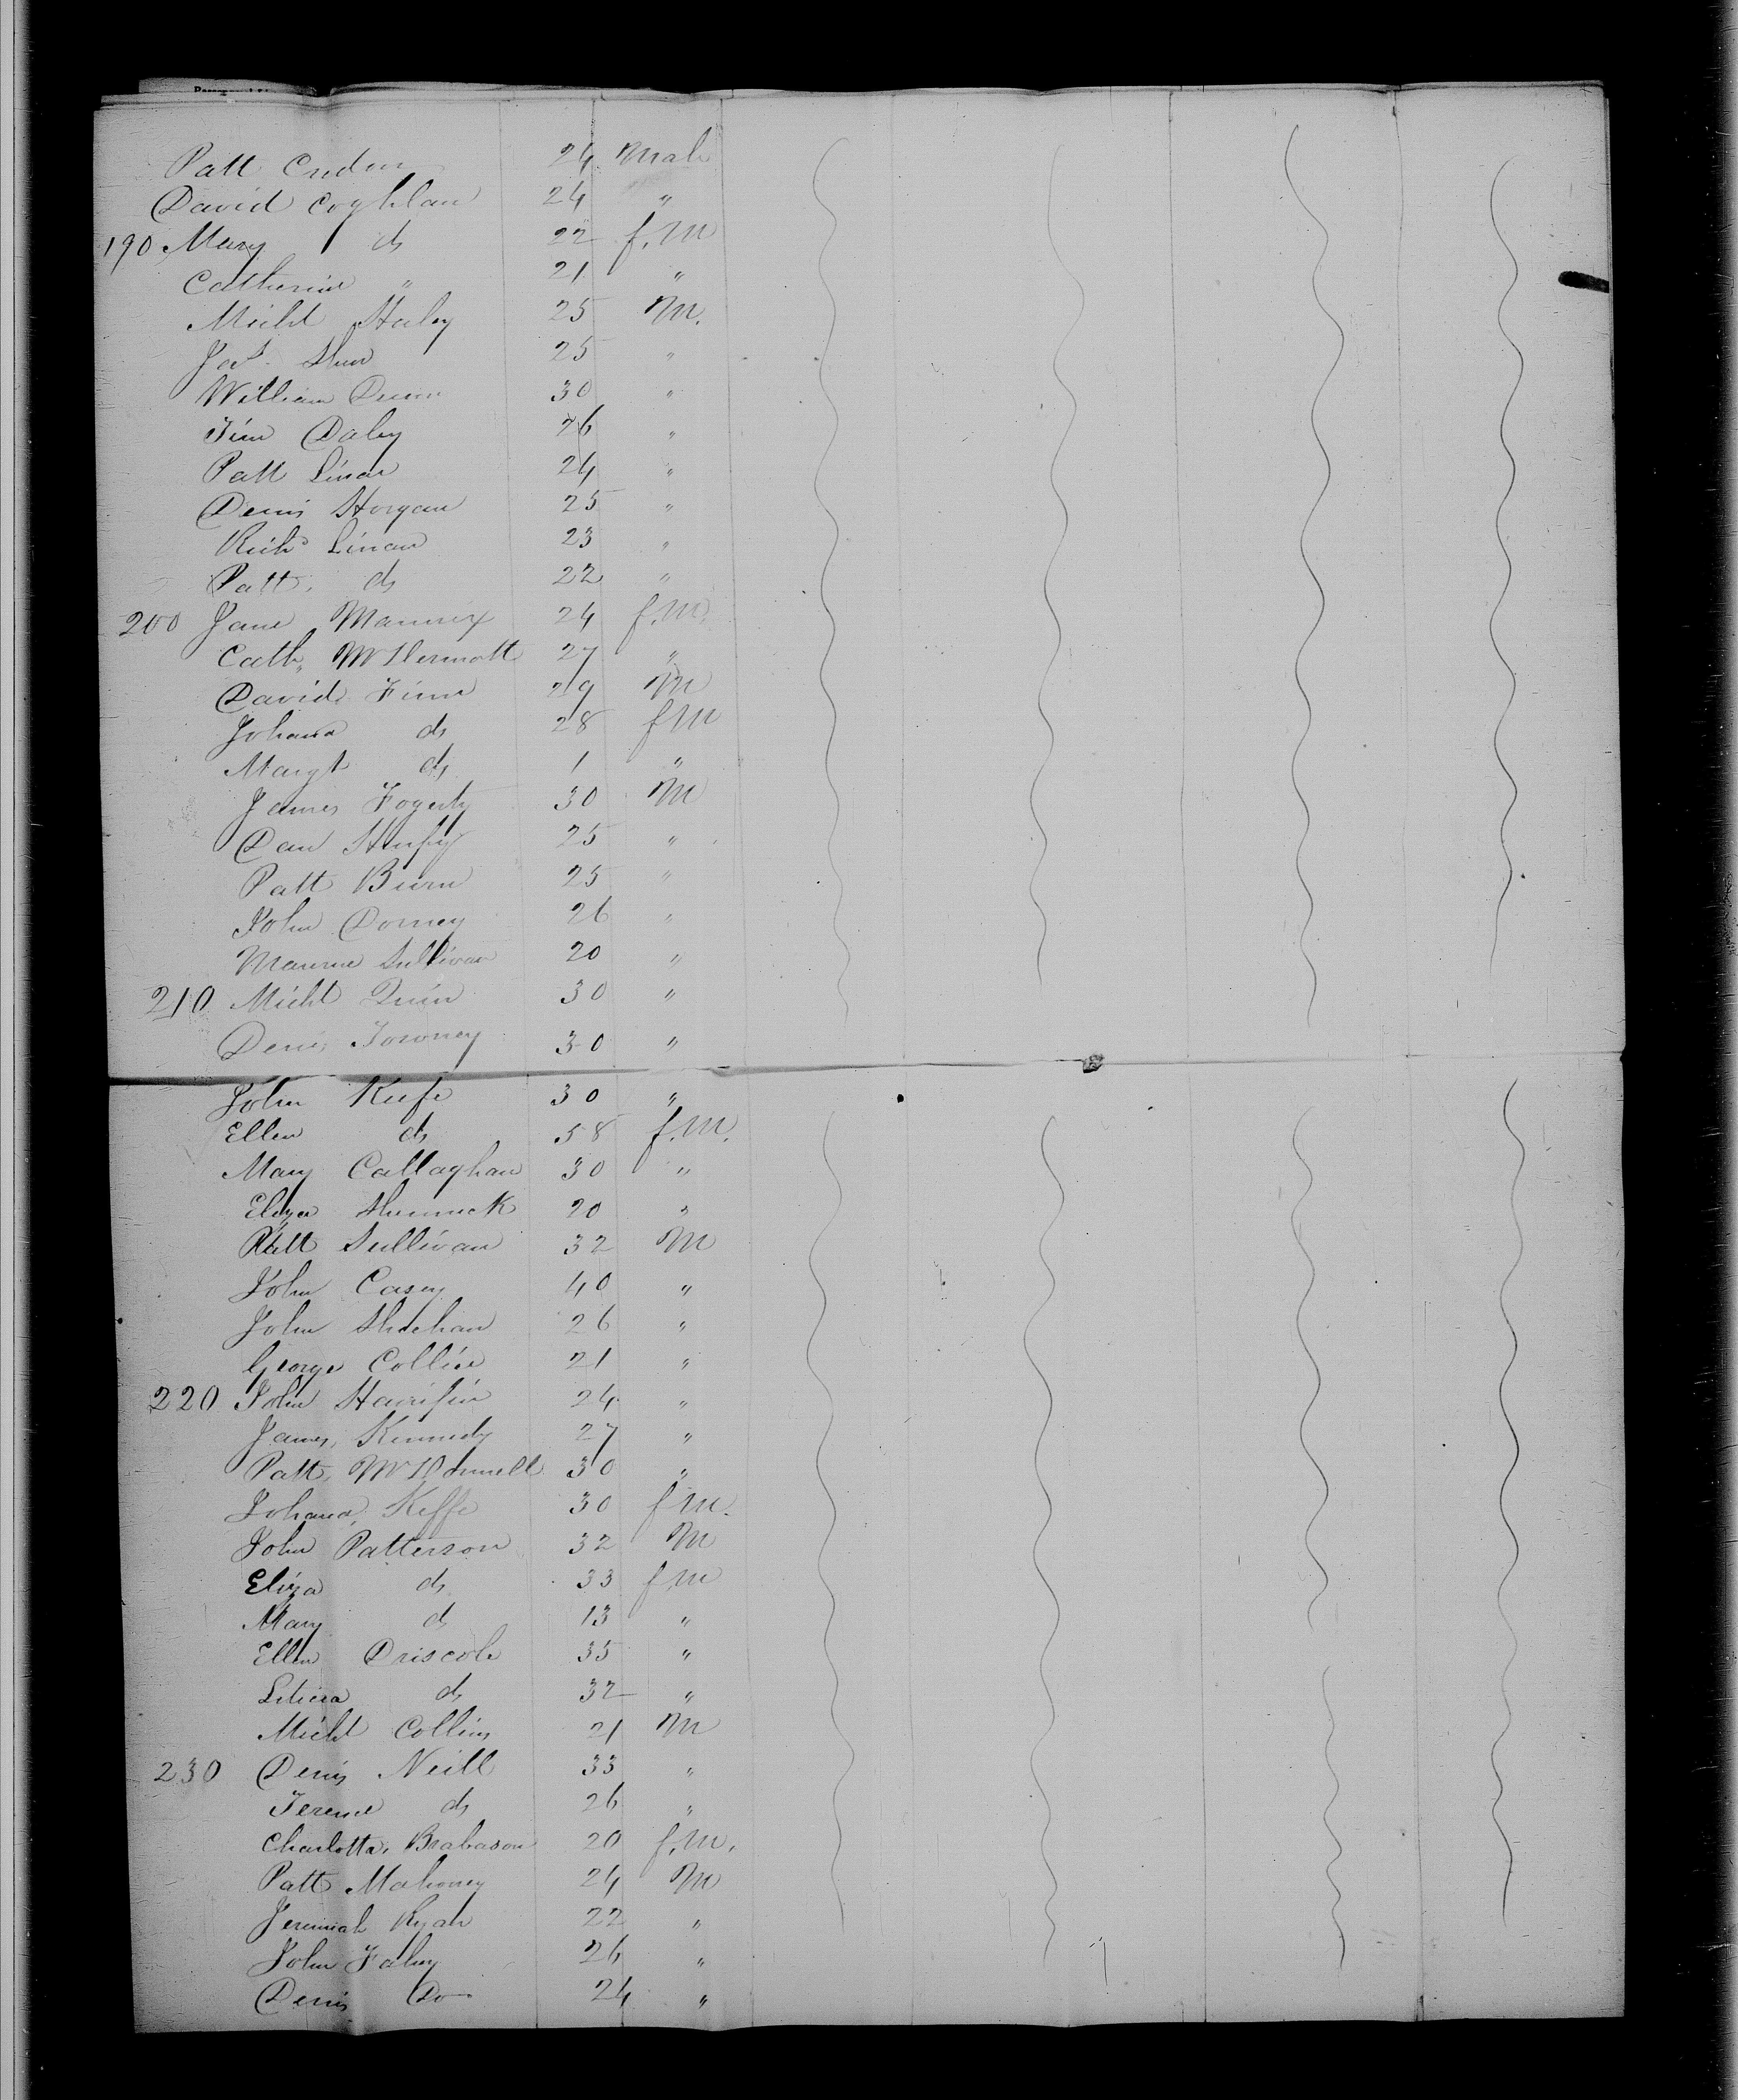 Patt 24 Male
David Coghlan 24 "
190 Mary do 22 f.m
Catherine " 21 "
Michl Haley 25 M.
Jas. Shea 25 "
William Dunn 30 "
Tim Daley 26 "
Patt Linan 24 "
Denis Horgan 25 "
Richd Linan 23 "
Patt. do 22 "
200 Jane Mannix 24 f.m.
Cath. McDermott 27 "
David Finn 29 M
Johana do 28 fm
Margt do 1 "
James Fogerty 30 M
Dan 25 "
Patt Burn 25 "
John Dorney 26 "
Maurice Sullivan 20 "
210 Michl Quin 30 "
Denis Towney 30 "
John Keefe 30 "
Ellen do 58 f.m.
Mary Callaghan 30 "
Eliza Shinnick 20 "
Patt Sullivan 32 M
John Casey 40 "
John Sheehan 26 "
George Collins 21 "
220 John 24 "
James Kennedy 27 "
Patt McDonnell 30 "
Johana Keffe 30 fm.
John Patterson 32 M
Eliza do 33 fm
Mary do 13 "
Ellen Driscole 35 "
do 32 "
Michl Collins 21 M
230 Denis Neill 33 "
Terence do 26 "
Charlotte Brabason 20 f.m.
Patt Mahoney 24 M
Jeremiah Ryan 22 "
John Fahey 26 "
Denis Do 24 "